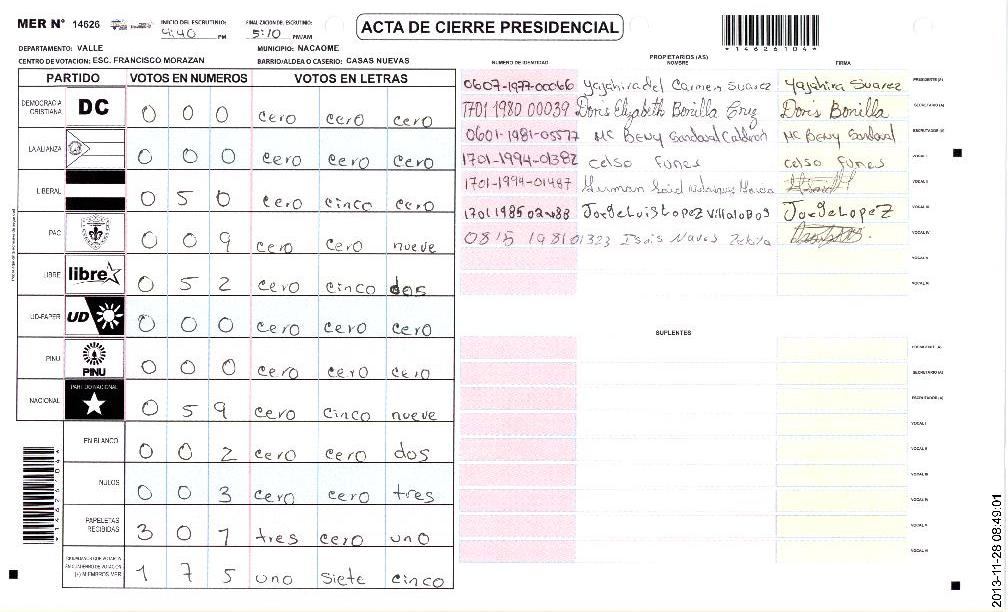 MER N° 14626 INICIO DEL ESCRUTINIO: 4:40 PM FINALIZACION DEL ESCRUTINIO: 5:10 PM/AM ACTA DE CIERRE PRESIDENCIAL
*14626104*
DEPARTAMENTO: VALLE MUNICIPIO: NACAOME
CENTRO DE VOTACION: ESC. FRANCISCO MORAZAN BARRIO/ALDEA O CASERIO: CASAS NUEVAS
PROPIETARIOS (AS)
NUMERO DE IDENTIDAD NOMBRE FIRMA
PARTIDO VOTOS EN NUMEROS VOTOS EN LETRAS
DEMOCRACIA CRISTIANA DC 0 0 0 cero cero cero
LA ALIANZA 0 0 0 cero cero cero
LIBERAL 0 5 0 cero cinco cero
PAC 0 0 9 cero cero nueve
LIBRE libre 0 5 2 cero cinco dos
UD-FAPER UD 0 0 0 cero cero cero
PINU PINU 0 0 0 cero cero cero
NACIONAL PARTIDO NACIONAL 0 5 9 cero cinco nueve
EN BLANCO 0 0 2 cero cero dos
NULOS 0 0 3 cero cero tres
PAPELETAS RECIBIDAS 3 0 1 tres cero uno
1 7 5 uno siete cinco
*14626104*
0607-1977-00066 Yajahira del Carmen Suarez Yajahira Suarez PRESIDENTE (A)
1701 1980 00039 Doris Elizabeth Bonilla Cruz Doris Bonilla SECRETARIO (A)
0601-1981-05577 MC Beny Sandoval Calderon MC Beny Sandoval ESCRUTADOR (A)
1701-1994-01382 celso funes celso funes VOCAL I
1701-1994-01487 VOCAL II
1701 1985 02488 Jorge Luis Lopez Villalobos Jorge Lopez VOCAL III
0815 1981 01323 VOCAL IV
VOCAL V
VOCAL VI
SUPLENTES
PRESIDENTE (A)
SECRETARIO (A)
ESCRUTADOR (A)
VOCAL I
VOCAL II
VOCAL III
VOCAL IV
VOCAL V
VOCAL VI
2013-11-28 08:49:01